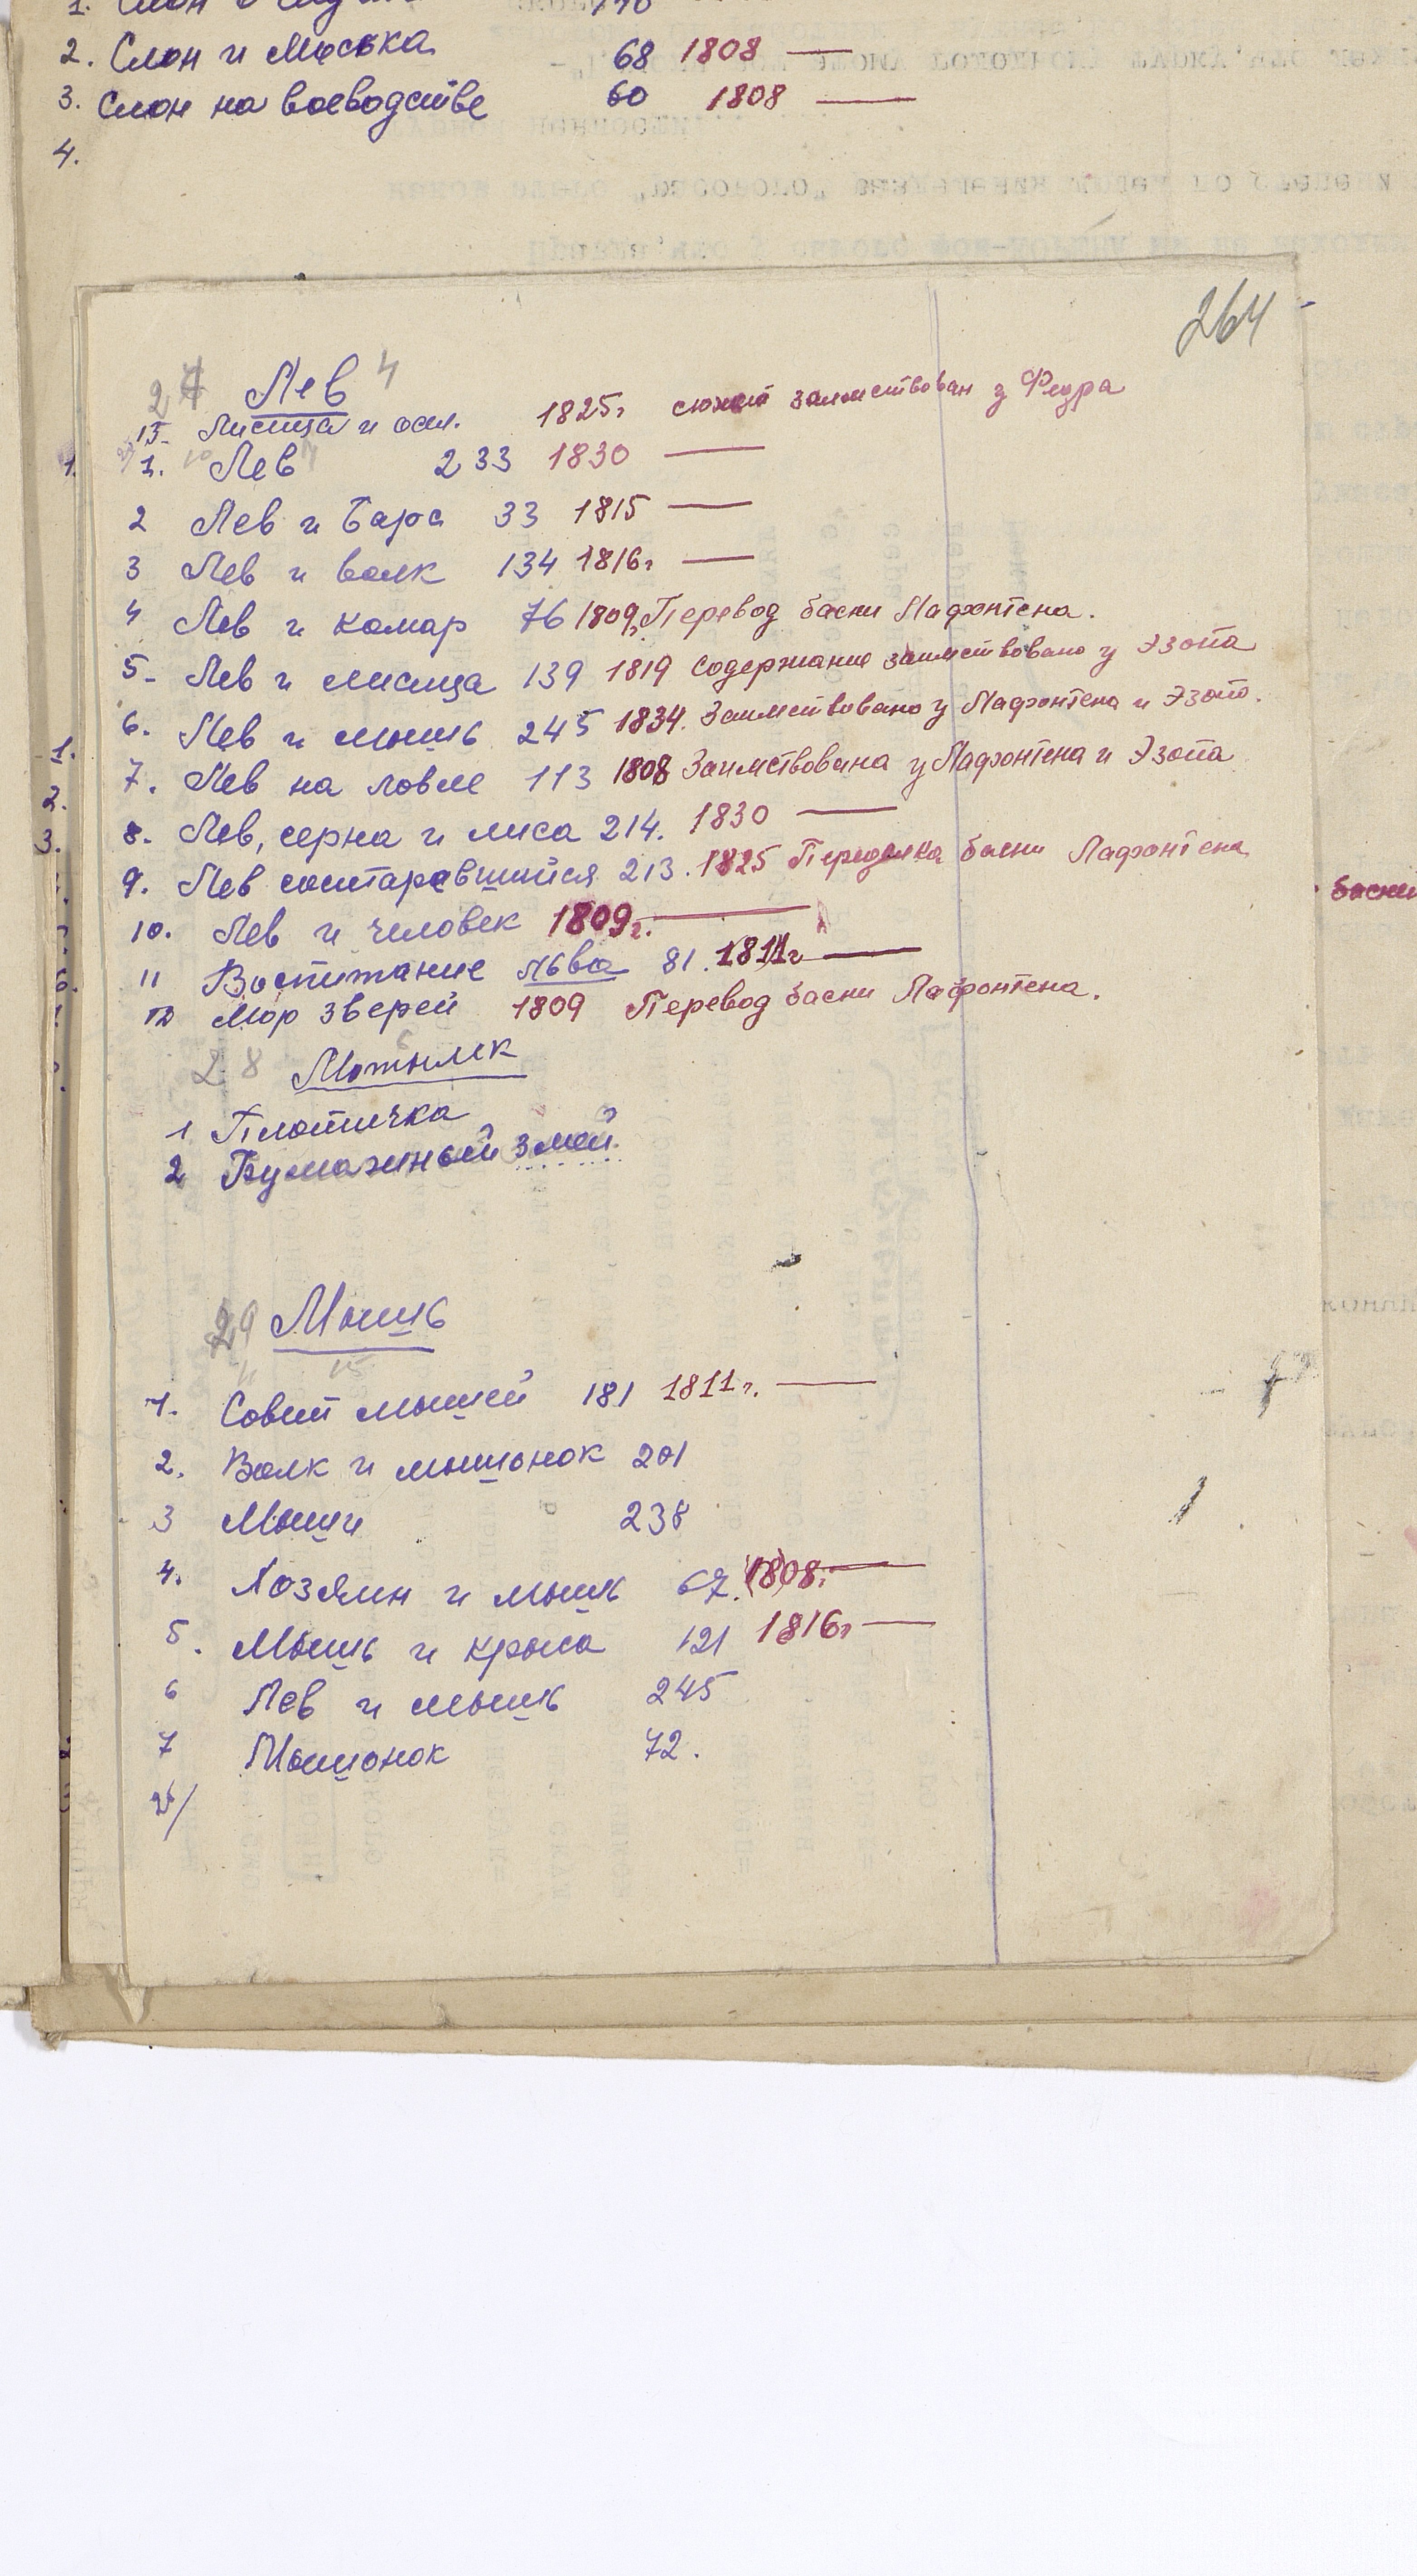 2. Слон и Моська 68 1808 —
3. Слон на воеводстве 60 1808 —
4.
264
27 Лев 4
13. Лисица и осел. 1825г сюжет заимствован у Федра
1. Лев 233 1830 —
2 Лев и Барс 33 1815 —
3 Лев и волк 134 1816г —
4 Лев и комар 76 1809г Перевод басни Лафонтена.
5. Лев и лисица 139 1819 Содержание заимствовано у Эзопа
6. Лев и мышь 245 1834. Заимствовано у Лафонтена и Эзопа.
7. Лев на ловле 113 1808 Заимствована у Лафонтена и Эзопа
8. Лев, серна и лиса 214. 1830 —
9. Лев состаревшийся 213. 1825 Переделка басни Лафонтена
10. Лев и человек 1809г. —
11 Воспитание льва 81. 1811г —
12 Мор зверей 1809 Перевод басни Лафонтена.
28 Мотылек
1 Плотичка
2 Бумажный змей.
29 Мышь
1. Совет мышей 181 1811г. —
2. Волк и мышонок 201
3 Мыши 238
4. Хозяин и мыши 67. 1808г —
5. Мышь и крыса 121 1816г —
6 Лев и мышь 245
7 Мышонок 72.
басни